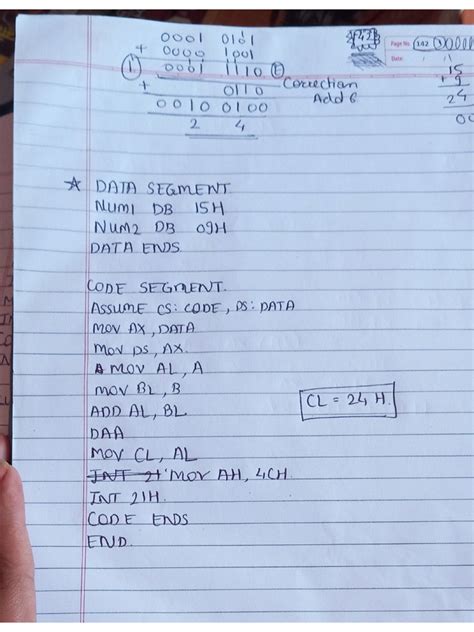 0001 0101
+ 0000 1001
① 0001 1110 Ⓔ
+ 0110 Correction Add 6
0010 0100
2 4
Page No 142
Date: / /
15
+ 9
24
☆ DATA SEGMENT
NUM1 DB 15H
NUM2 DB 09H
DATA ENDS
CODE SEGMENT.
ASSUME CS: CODE, DS: DATA
MOV AX, DATA
MOV DS, AX.
MOV AL, A
MOV BL, B
ADD AL, BL
CL = 24 H.
DAA
MOV CL, AL
INT 21 MOV AH, 4CH.
INT 21H.
CODE ENDS
END.